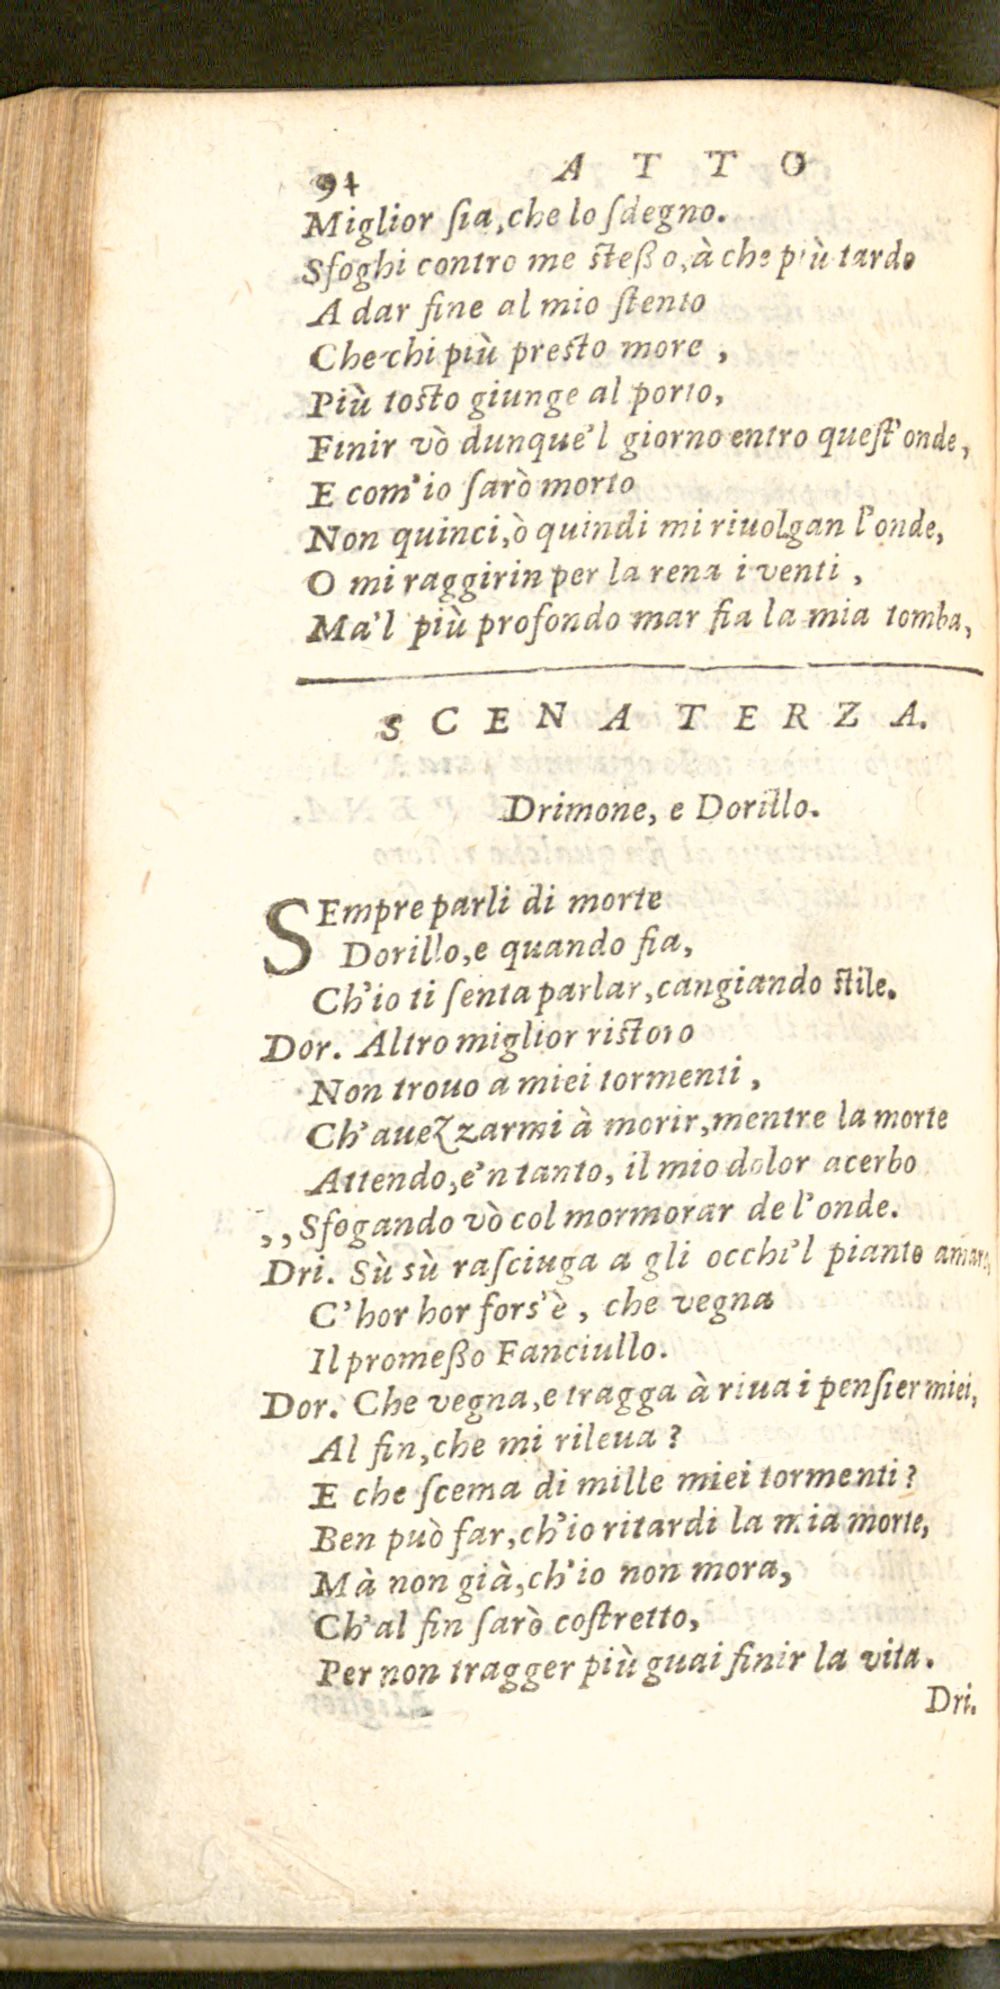 94 ATTO
Miglior ſia, che lo ſdegno.
Sfoghi contro me ſteßo, à che più tardo
A dar fine al mio ſtento
Che chi più preſto more,
Più toſto giunge al porto,
Finir vò dunque'l giorno entro queſt'onde,
E com'io ſarò morto
Non quinci, ò quindi mi riuolgan l'onde,
O mi raggirin per la rena i venti,
Ma'l più profondo mar fia la mia tomba,
SCENA TERZA.
Drimone, e Dorillo.
SEmpre parli di morte
Dorillo, e quando fia,
Ch'io ti ſenta parlar, cangiando ſtile.
Dor. Altro miglior riſtoro
Non trouo a miei tormenti,
Ch'auezzarmi à morir, mentre la morte
Attendo, e'n tanto, il mio dolor acerbo
,,Sfogando vò col mormorar de l'onde.
Dri. Sù sù raſciuga a gli occhi'l pianto amaro,
C'hor hor fors'è, che vegna
Il promeßo Fanciullo.
Dor. Che vegna, e tragga à riua i penſier miei,
Al fin, che mi rileua?
E che ſcema di mille miei tormenti?
Ben può far, ch'io ritardi la mia morte,
Mà non già, ch'io non mora,
Ch'al fin ſarò coſtretto,
Per non tragger più guai finir la vita.
Dri.